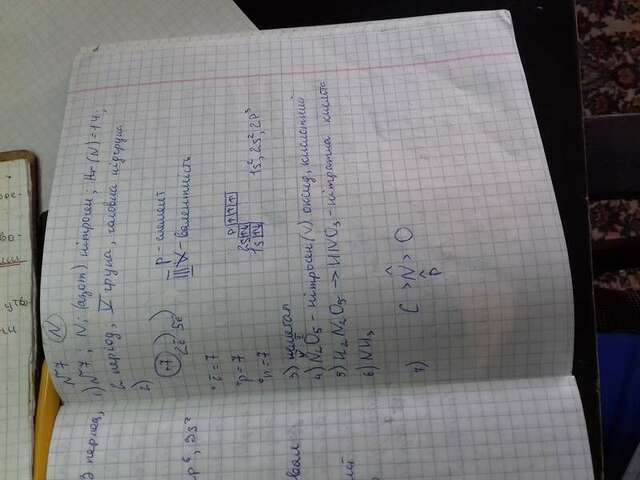 №7 (N)
1) №7; N; (азот) нітроген, Ar (N) = 14,
2 період, V група, головна підгрупа
2)
+7 ) )
2ē 5ē
p - елемент
III V - валентність
ē = 7
p = 7
n = 7
p ↑ ↑ ↑
2s ↑↓
1s ↑↓
1s², 2s², 2p³
3) неметал
4) N₂O₅ - нітроген (V) оксид, кислотний
5) H₂N₂O₆ → HNO₃ - нітратна кислота
6) NH₃
7) C > N > O
P
3 період,
p⁶, 3s²